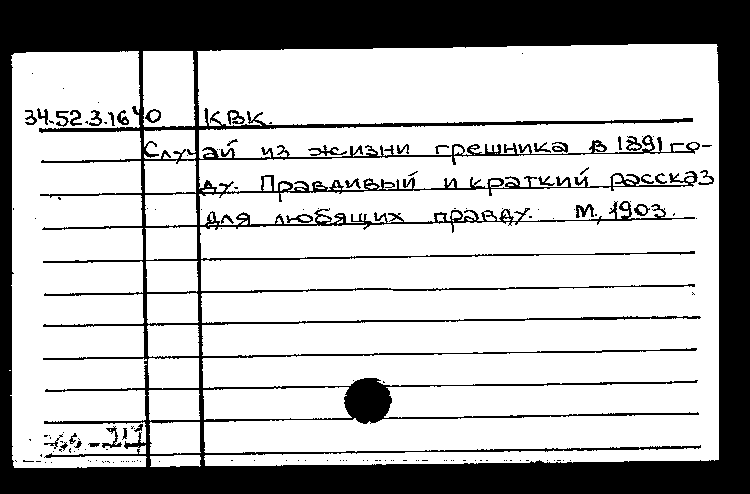 34.52.3.1640 К.В.К.
Случай из жизни грешника в 1891 го-
ду. Правдивый и краткий рассказ
для любящих правду. М., 1903.